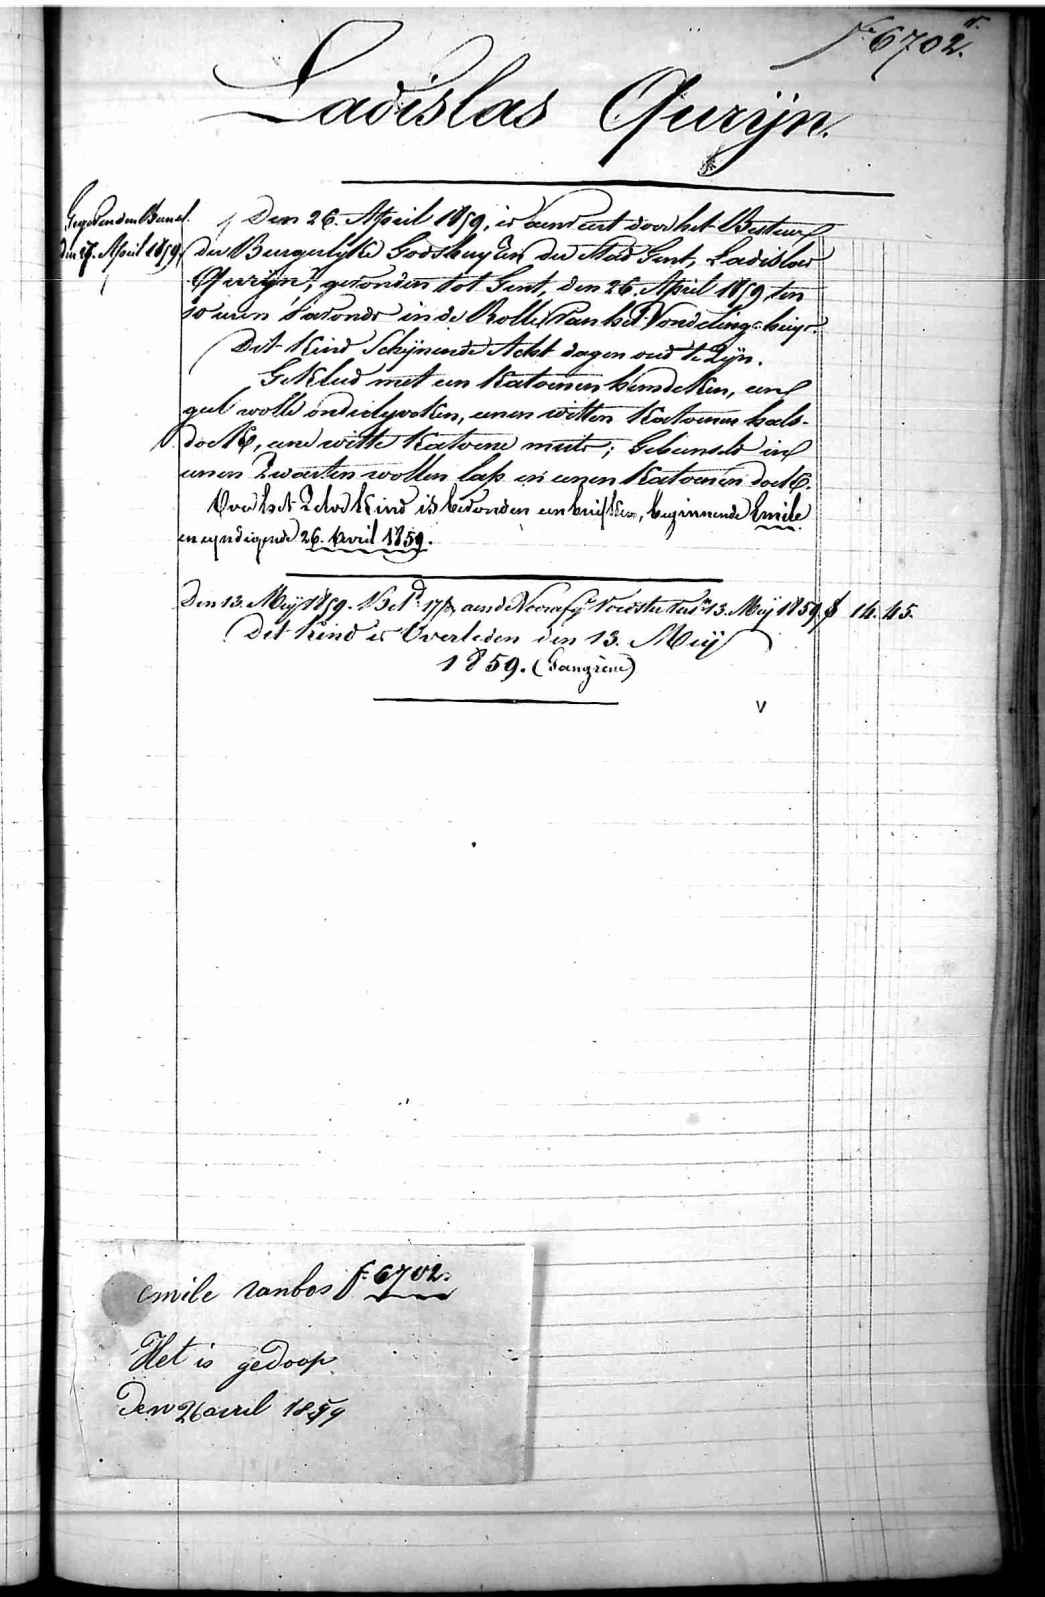 Fo. 6702.
Ladislas Quryn.
Gegeven den Band.
den 27. April 1859.
Den 26. April 1859, is aenveert door het Bestuer
der Burgerlyke Godshuyzen der Stad Gent, Ladislas
Quryn, gevonden tot Gent, den 26. April 1859 ten
10 uren 's avonds in de Rolle van het Vondelinghuys.
Dit Kind Schynende Acht dagen oud te Zyn.
Gekleed met een Katoenen hemdeken, een
geel wolle ondielyvoken, eenen witten Katoenen hals-
doek, eene witte Katoene muts; Gebunseld in
eenen Zwarten wollen lap en eenen Katoenen doek.
Voor het Zelve Kind is bevonden een briefken, beginnende Emile
en eyndigende 26. Avril 1859.
Den 13. Mey 1859. Betd. 17 aen de Voedster 13. Mey 1859. f 14. 45.
Dit Kind is Overleden den 13. Mey
1859. (Gangrène)
v
emile vanbos f. 6702.
Het is gedoop
Den 26 avril 1859